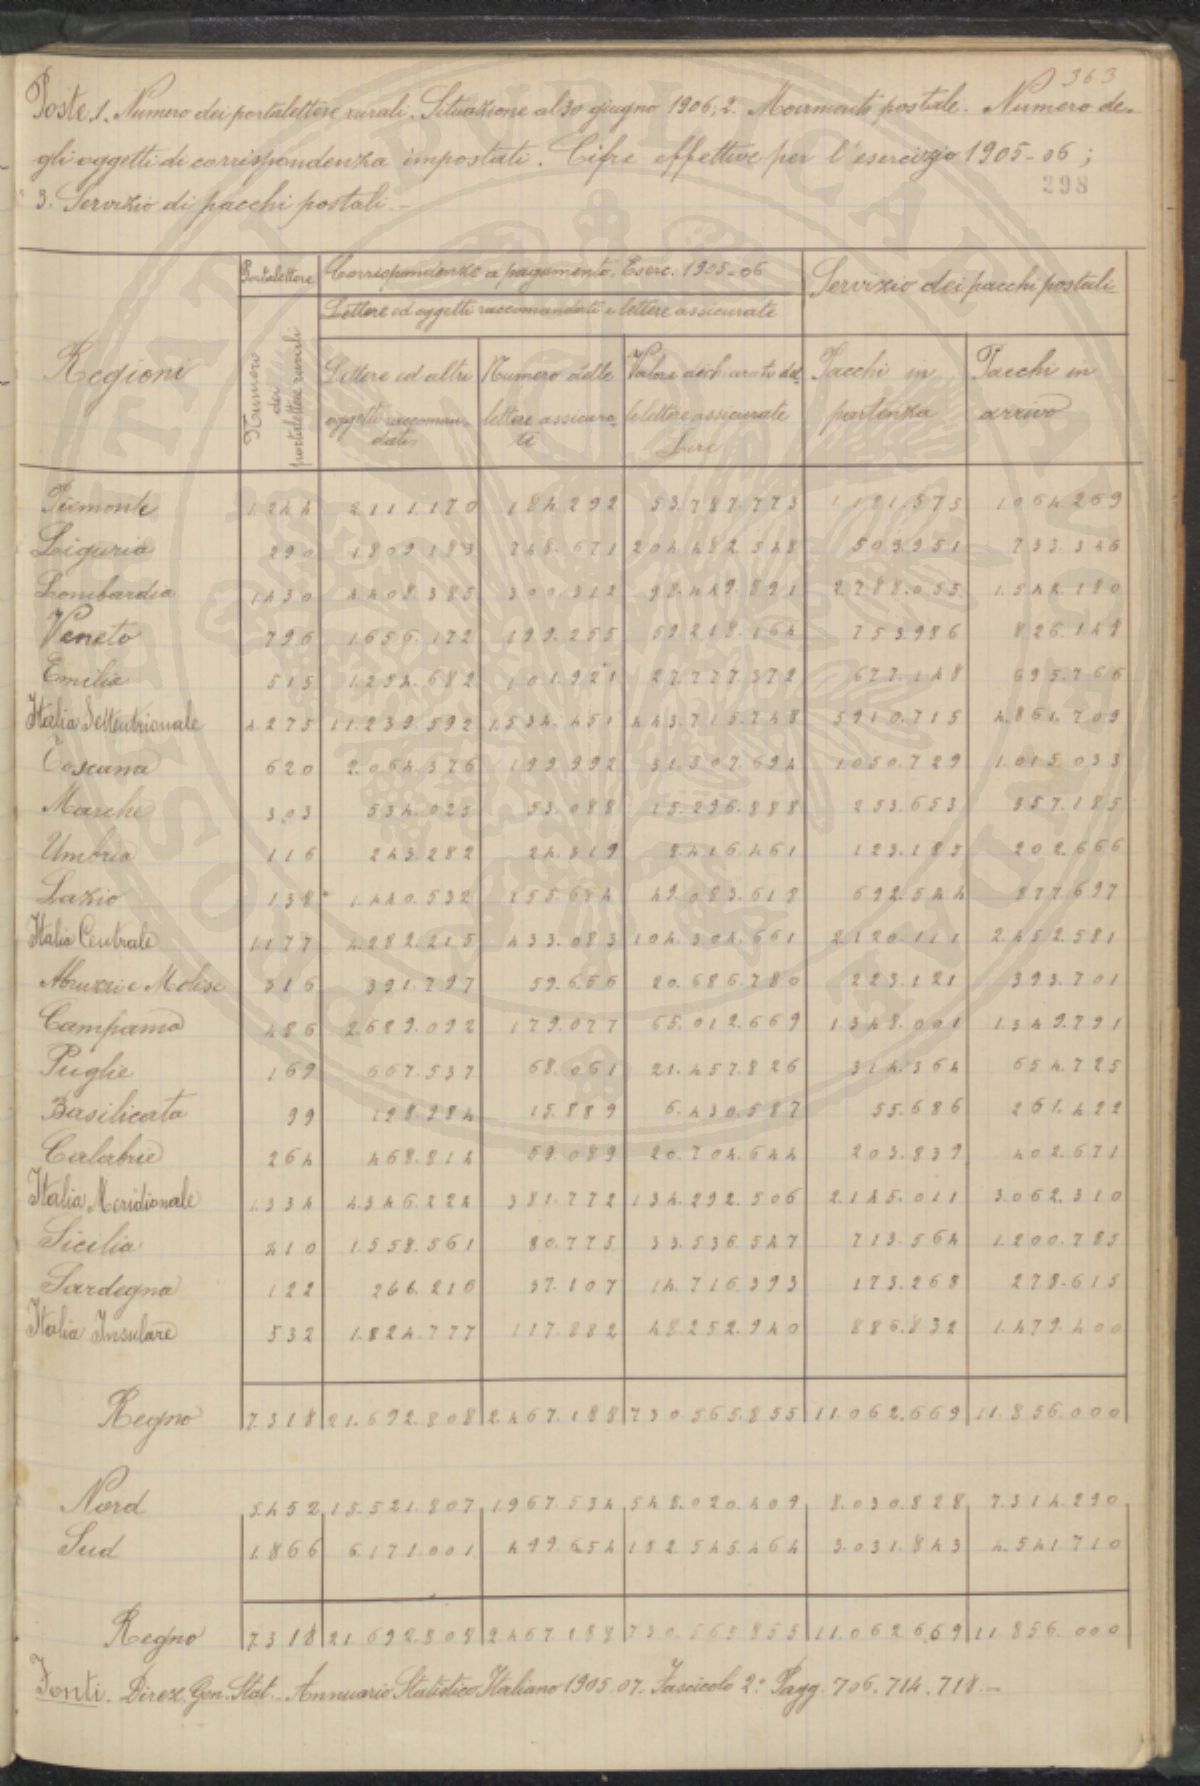 363
Poste 1. Numero dei portalettere rurali. Situazione al 30 giugno 1906; 2. Movimento postale. Numero de-
gli oggetti di corrispondenza impostati. Cifre effettive per l'esercizio 1905-06;
298
3. Servizio di pacchi postali.-
Regioni
Portalettere
Numero dei portalettere rurali
Corrispondenze a pagamento. Eserc. 1905-06
Lettere ed oggetti raccomandati e lettere assicurate
Lettere ed altri oggetti raccoman- dati
Numero delle lettere assicura- te
Valore dichiarato del- le lettere assicurate Lire
Servizio dei pacchi postali
Pacchi in partenza
Pacchi in arrivo
Piemonte 1.244 2.111.170 184.292 53.787.773 1.181.575 1.064.269
Liguria 290 1.809.183 748.671 204.482.548 509.951 733.346
Lombardia 1.430 4.408.385 300.312 98.449.891 2.788.055 1.542.180
Veneto 796 1.656.172 199.255 59.218.164 753.986 826.148
Emilia 515 1.254.682 101.921 27.777.372 677.148 695.766
Italia Settentrionale 4.275 11.239.592 1.534.451 443.715.748 5.910.715 4.861.709
Toscana 620 2.064.376 199.992 31.507.694 1.050.729 1.015.033
Marche 303 534.025 53.088 15.296.888 253.653 357.185
Umbria 116 243.282 24.319 8.416.461 123.185 202.666
Lazio 138 1.440.532 155.684 49.083.618 692.544 877.697
Italia Centrale 1.177 4.282.215 433.083 104.304.661 2.120.111 2.452.581
Abruzzi e Molise 316 391.797 59.656 20.686.780 223.121 393.701
Campania 486 2.689.092 179.077 65.012.669 1.348.001 1.349.791
Puglie 169 667.537 68.061 21.457.826 314.364 654.725
Basilicata 99 128.984 15.889 6.430.587 55.686 261.422
Calabrie 264 468.814 59.089 20.704.644 203.839 402.671
Italia Meridionale 1.334 4.346.224 381.772 134.292.506 2.145.011 3.062.310
Sicilia 410 1.558.561 80.775 33.536.547 713.564 1.200.785
Sardegna 122 266.216 37.107 14.716.393 173.268 278.615
Italia Insulare 532 1.824.777 117.882 48.252.940 886.832 1.479.400
Regno 7.318 21.692.808 2.467.188 730.565.855 11.062.669 11.856.000
Nord 5.452 15.521.807 1.967.534 548.020.409 8.030.828 7.314.290
Sud 1.866 6.171.001 499.654 182.545.464 3.031.843 4.541.710
Regno 7.318 21.692.808 2.467.188 730.565.855 11.062.669 11.856.000
Fonti. Direz. Gen. Stat. - Annuario Statistico Italiano 1905.07. Fascicolo 2.° Pagg. 706.714.718.-